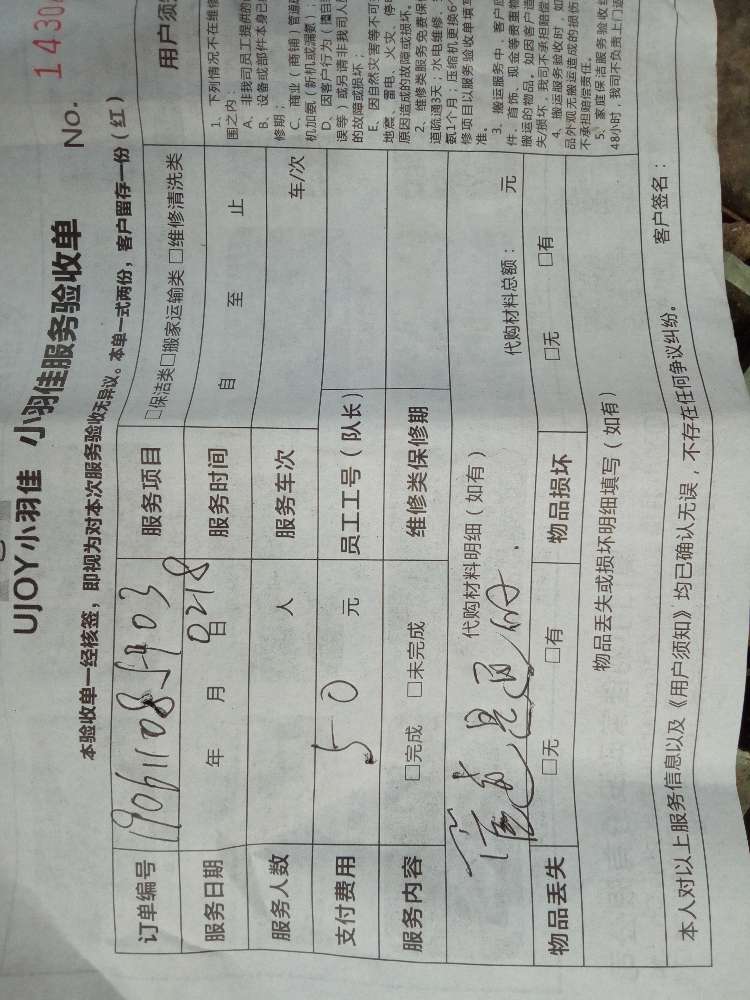 UJOY小羽佳 小羽佳服务验收单
No. 1430
本验收单一经核签，即视为对本次服务验收无异议。本单一式两份，客户留存一份（红）
订单编号 服务项目 □保洁类□搬家运输类 □维修清洗类
服务日期 年 月 日 服务时间 自 至 止
服务人数 人 服务车次 车/次
支付费用 50 元 员工工号（队长）
服务内容 □完成 □未完成 维修类保修期
代购材料明细（如有） 代购材料总额： 元
管道疏通
物品丢失 □无 □有 物品损坏 □无 □有
物品丢失或损坏明细填写（如有）
本人对以上服务信息以及《用户须知》均已确认无误，不存在任何争议纠纷。 客户签名：
用户须
1、下列情况不在维修
围之内：
A、非我司员工提供的
B、设备或部件本身已
修期；
C、商业（商铺）管道
机加氨（新机或漏氨）；
D、因客户行为（擅自
误等）或另请非我司人
的故障或损坏；
E、因自然灾害等不可
地震、雷电、火灾、停电
原因造成的故障或损坏。
2、维修类服务免费保
道疏通3天；水电维修
氨1个月；压缩机更换6
修项目以服务验收单填写
准。
3、搬运服务中，客户应
件、首饰、现金等贵重物
搬运的物品，如因客户造
失/损坏，我司不承担赔偿
4、搬运服务验收时，如
品外观无搬运造成的损伤
不承担赔偿责任。
5、家庭保洁服务验收
48小时，我司不负责上门返